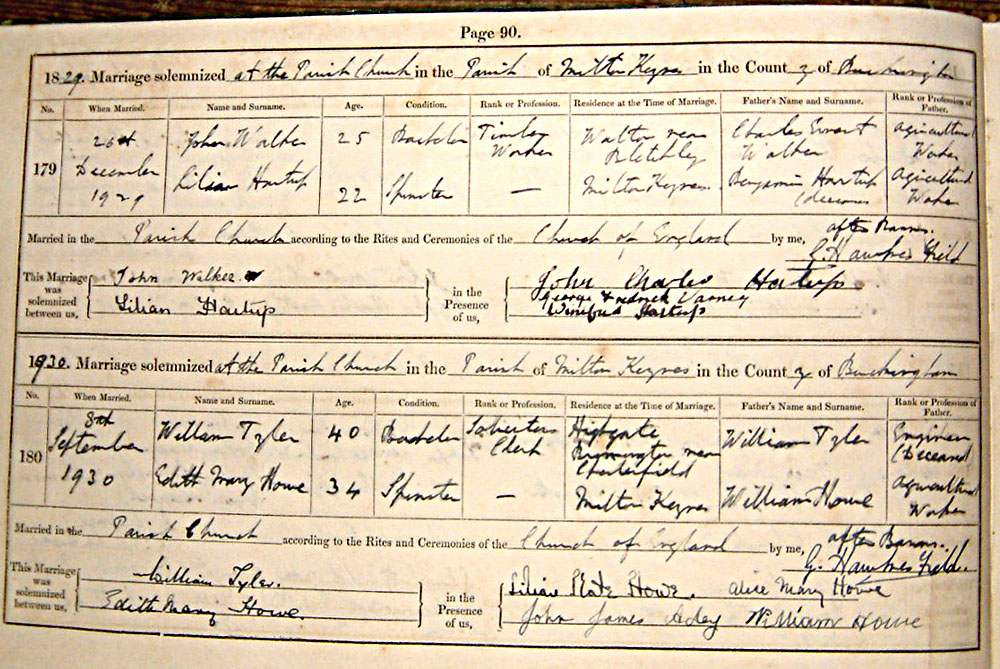 Page 90.
1829. Marriage solemnized at the Parish Church in the Parish of Milton Keynes in the County of Buckingham
No. When Married. Name and Surname. Age. Condition. Rank or Profession. Residence at the Time of Marriage. Father's Name and Surname. Rank or Profession of Father.
179 26th December 1929 John Walker 25 Bachelor Worker Walton near Bletchley Charles Walker Agricultural Worker
Lilian Hartup 22 Spinster — Milton Keynes Benjamin Hartup Agricultural Worker
Married in the Parish Church according to the Rites and Ceremonies of the Church of England after Banns. by me, G. Hawkes Field
This Marriage was solemnized between us, John Walker
Lilian Hartup
in the Presence of us, John Charles Hartup
George Varney
Winifred Hartup
1930. Marriage solemnized at the Parish Church in the Parish of Milton Keynes in the County of Buckingham
No. When Married. Name and Surname. Age. Condition. Rank or Profession. Residence at the Time of Marriage. Father's Name and Surname. Rank or Profession of Father.
180 8th September 1930 William Tyler 40 Bachelor Solicitors Clerk Highgate Brimington near Chesterfield William Tyler Engineer (Deceased)
Edith Mary Howe 34 Spinster — Milton Keynes William Howe Agricultural Worker
Married in the Parish Church according to the Rites and Ceremonies of the Church of England after Banns. by me, G. Hawkes Field.
This Marriage was solemnized between us, William Tyler.
Edith Mary Howe
in the Presence of us, Lilian Howe. Alice Mary Howe
John James William Howe